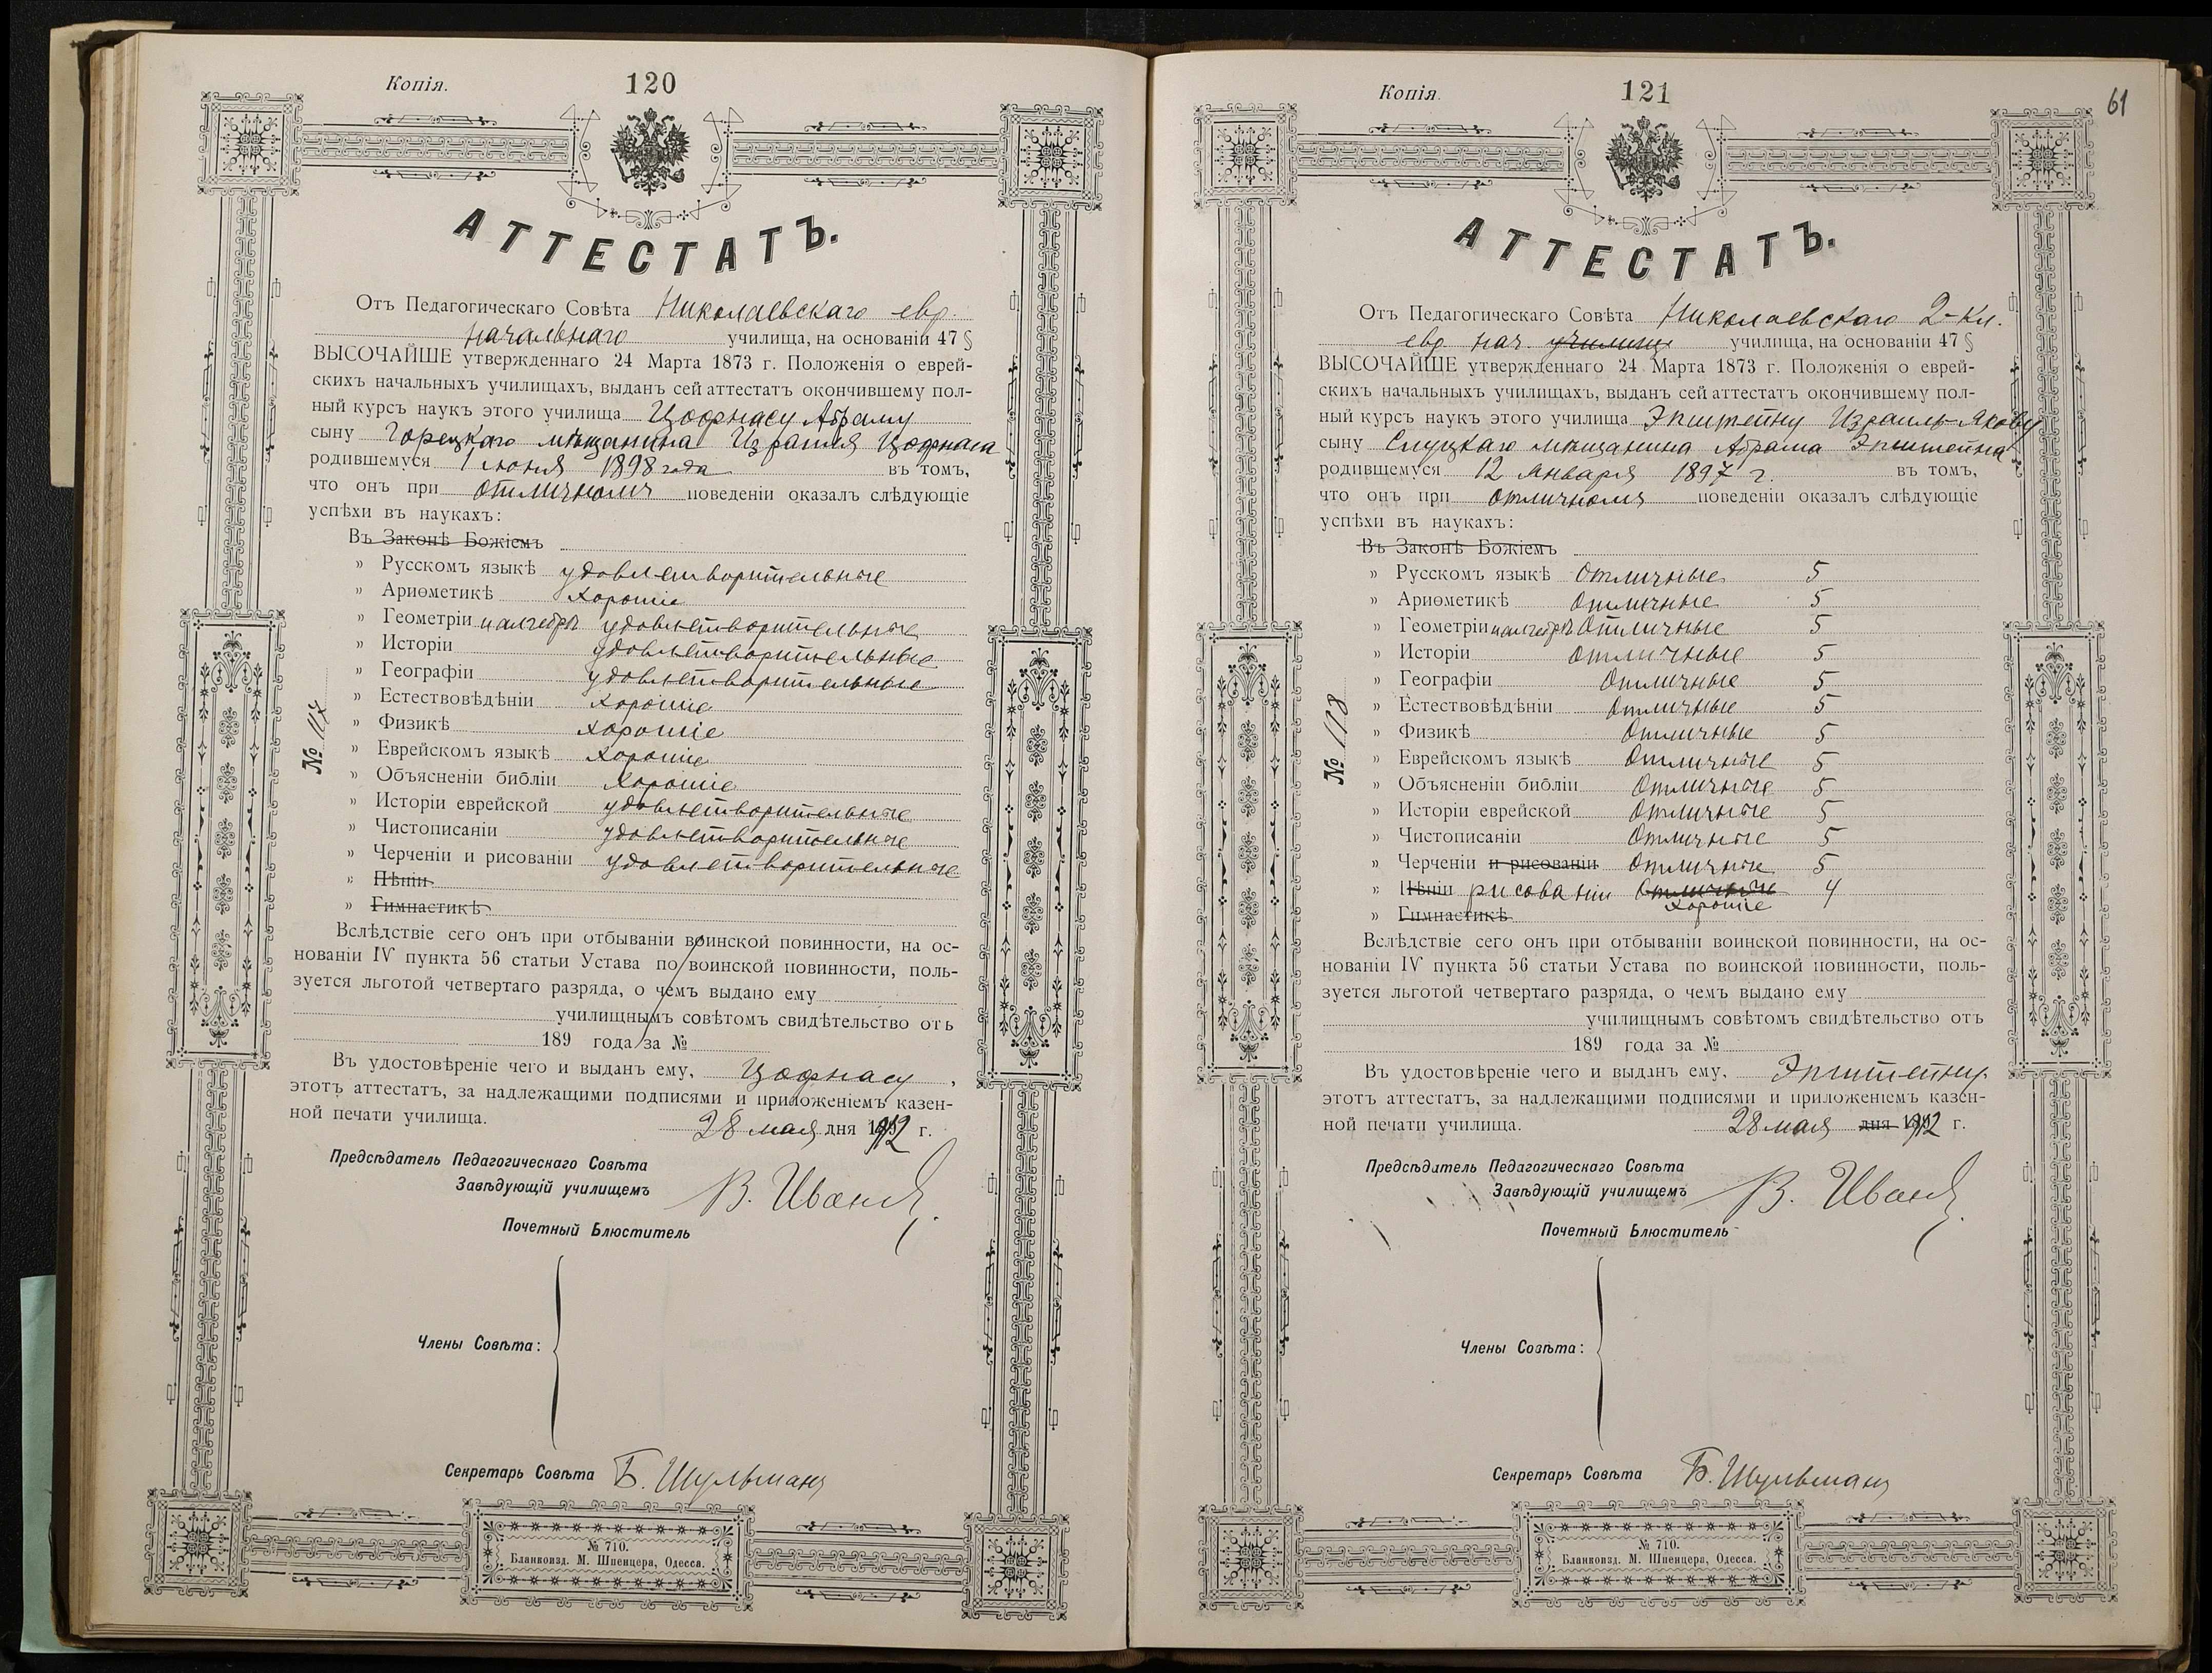 Копія.
120
АТТЕСТАТЪ.
Отъ Педагогическаго Совѣта Николаевскаго евр.
начальнаго училища, на основаніи 47 §
ВЫСОЧАЙШЕ утвержденнаго 24 Марта 1873 г. Положенія о еврей-
скихъ начальныхъ училищахъ, выданъ сей аттестатъ окончившему пол-
ный курсъ наукъ этого училища Цофнасу Абраму
сыну Горецкаго мѣщанина Израиля Цофнаса
родившемуся 1 июня 1898 года въ томъ,
что онъ при отличномъ поведеніи оказалъ слѣдующіе
успѣхи въ наукахъ:
Въ Законѣ Божіемъ
» Русскомъ языкѣ удовлетворительные
» Ариѳметикѣ хорошіе
» Геометріи и алгебрѣ удовлетворительные
» Исторіи удовлетворительные
» Географіи удовлетворительные
» Естествовѣдѣніи хорошіе
» Физикѣ хорошіе
» Еврейскомъ языкѣ хорошіе
» Объясненіи библіи хорошіе
» Исторіи еврейской удовлетворительные
» Чистописаніи удовлетворительные
» Черченіи и рисованіи удовлетворительные
» Пѣніи
» Гимнастикѣ
№ 117
Вслѣдствіе сего онъ при отбываніи воинской повинности, на ос-
нованіи IV пункта 56 статьи Устава по воинской повинности, поль-
зуется льготой четвертаго разряда, о чемъ выдано ему
училищнымъ совѣтомъ свидѣтельство отъ
189 года за №
Въ удостовѣреніе чего и выданъ ему, Цофнасу,
этотъ аттестатъ, за надлежащими подписями и приложеніемъ казен-
ной печати училища.
28 мая дня 1912 г.
Предсѣдатель Педагогическаго Совѣта
Завѣдующій училищемъ В. Ивано
Почетный Блюститель
Члены Совѣта:
Секретарь Совѣта Б. Шульманъ
№ 710.
Бланкоизд. М. Шпенцера, Одесса.
Копія.
121
61
АТТЕСТАТЪ.
Отъ Педагогическаго Совѣта Николаевскаго 2-кл.
евр. нач. училища училища, на основаніи 47 §
ВЫСОЧАЙШЕ утвержденнаго 24 Марта 1873 г. Положенія о еврей-
скихъ начальныхъ училищахъ, выданъ сей аттестатъ окончившему пол-
ный курсъ наукъ этого училища Эпштейну Израиль-Якову
сыну Слуцкаго мѣщанина Абрама Эпштейна
родившемуся 12 Января 1897 г. въ томъ,
что онъ при отличномъ поведеніи оказалъ слѣдующіе
успѣхи въ наукахъ:
Въ Законѣ Божіемъ
» Русскомъ языкѣ Отличные 5
» Ариѳметикѣ Отличные 5
» Геометріи и алгебрѣ Отличные 5
» Исторіи Отличные 5
» Географіи Отличные 5
» Естествовѣдѣніи Отличные 5
» Физикѣ Отличные 5
» Еврейскомъ языкѣ Отличные 5
» Объясненіи библіи Отличные 5
» Исторіи еврейской Отличные 5
» Чистописаніи Отличные 5
» Черченіи и рисованіи Отличные 5
» Пѣніи рисованіи Отличные 4
хорошіе
» Гимнастикѣ
№ 118
Вслѣдствіе сего онъ при отбываніи воинской повинности, на ос-
нованіи IV пункта 56 статьи Устава по воинской повинности, поль-
зуется льготой четвертаго разряда, о чемъ выдано ему
училищнымъ совѣтомъ свидѣтельство отъ
189 года за №
Въ удостовѣреніе чего и выданъ ему, Эпштейну
этотъ аттестатъ, за надлежащими подписями и приложеніемъ казен-
ной печати училища.
28 мая дня 1912 г.
Предсѣдатель Педагогическаго Совѣта
Завѣдующій училищемъ В. Ивано
Почетный Блюститель
Члены Совѣта:
Секретарь Совѣта Б. Шульманъ
№ 710.
Бланкоизд. М. Шпенцера, Одесса.